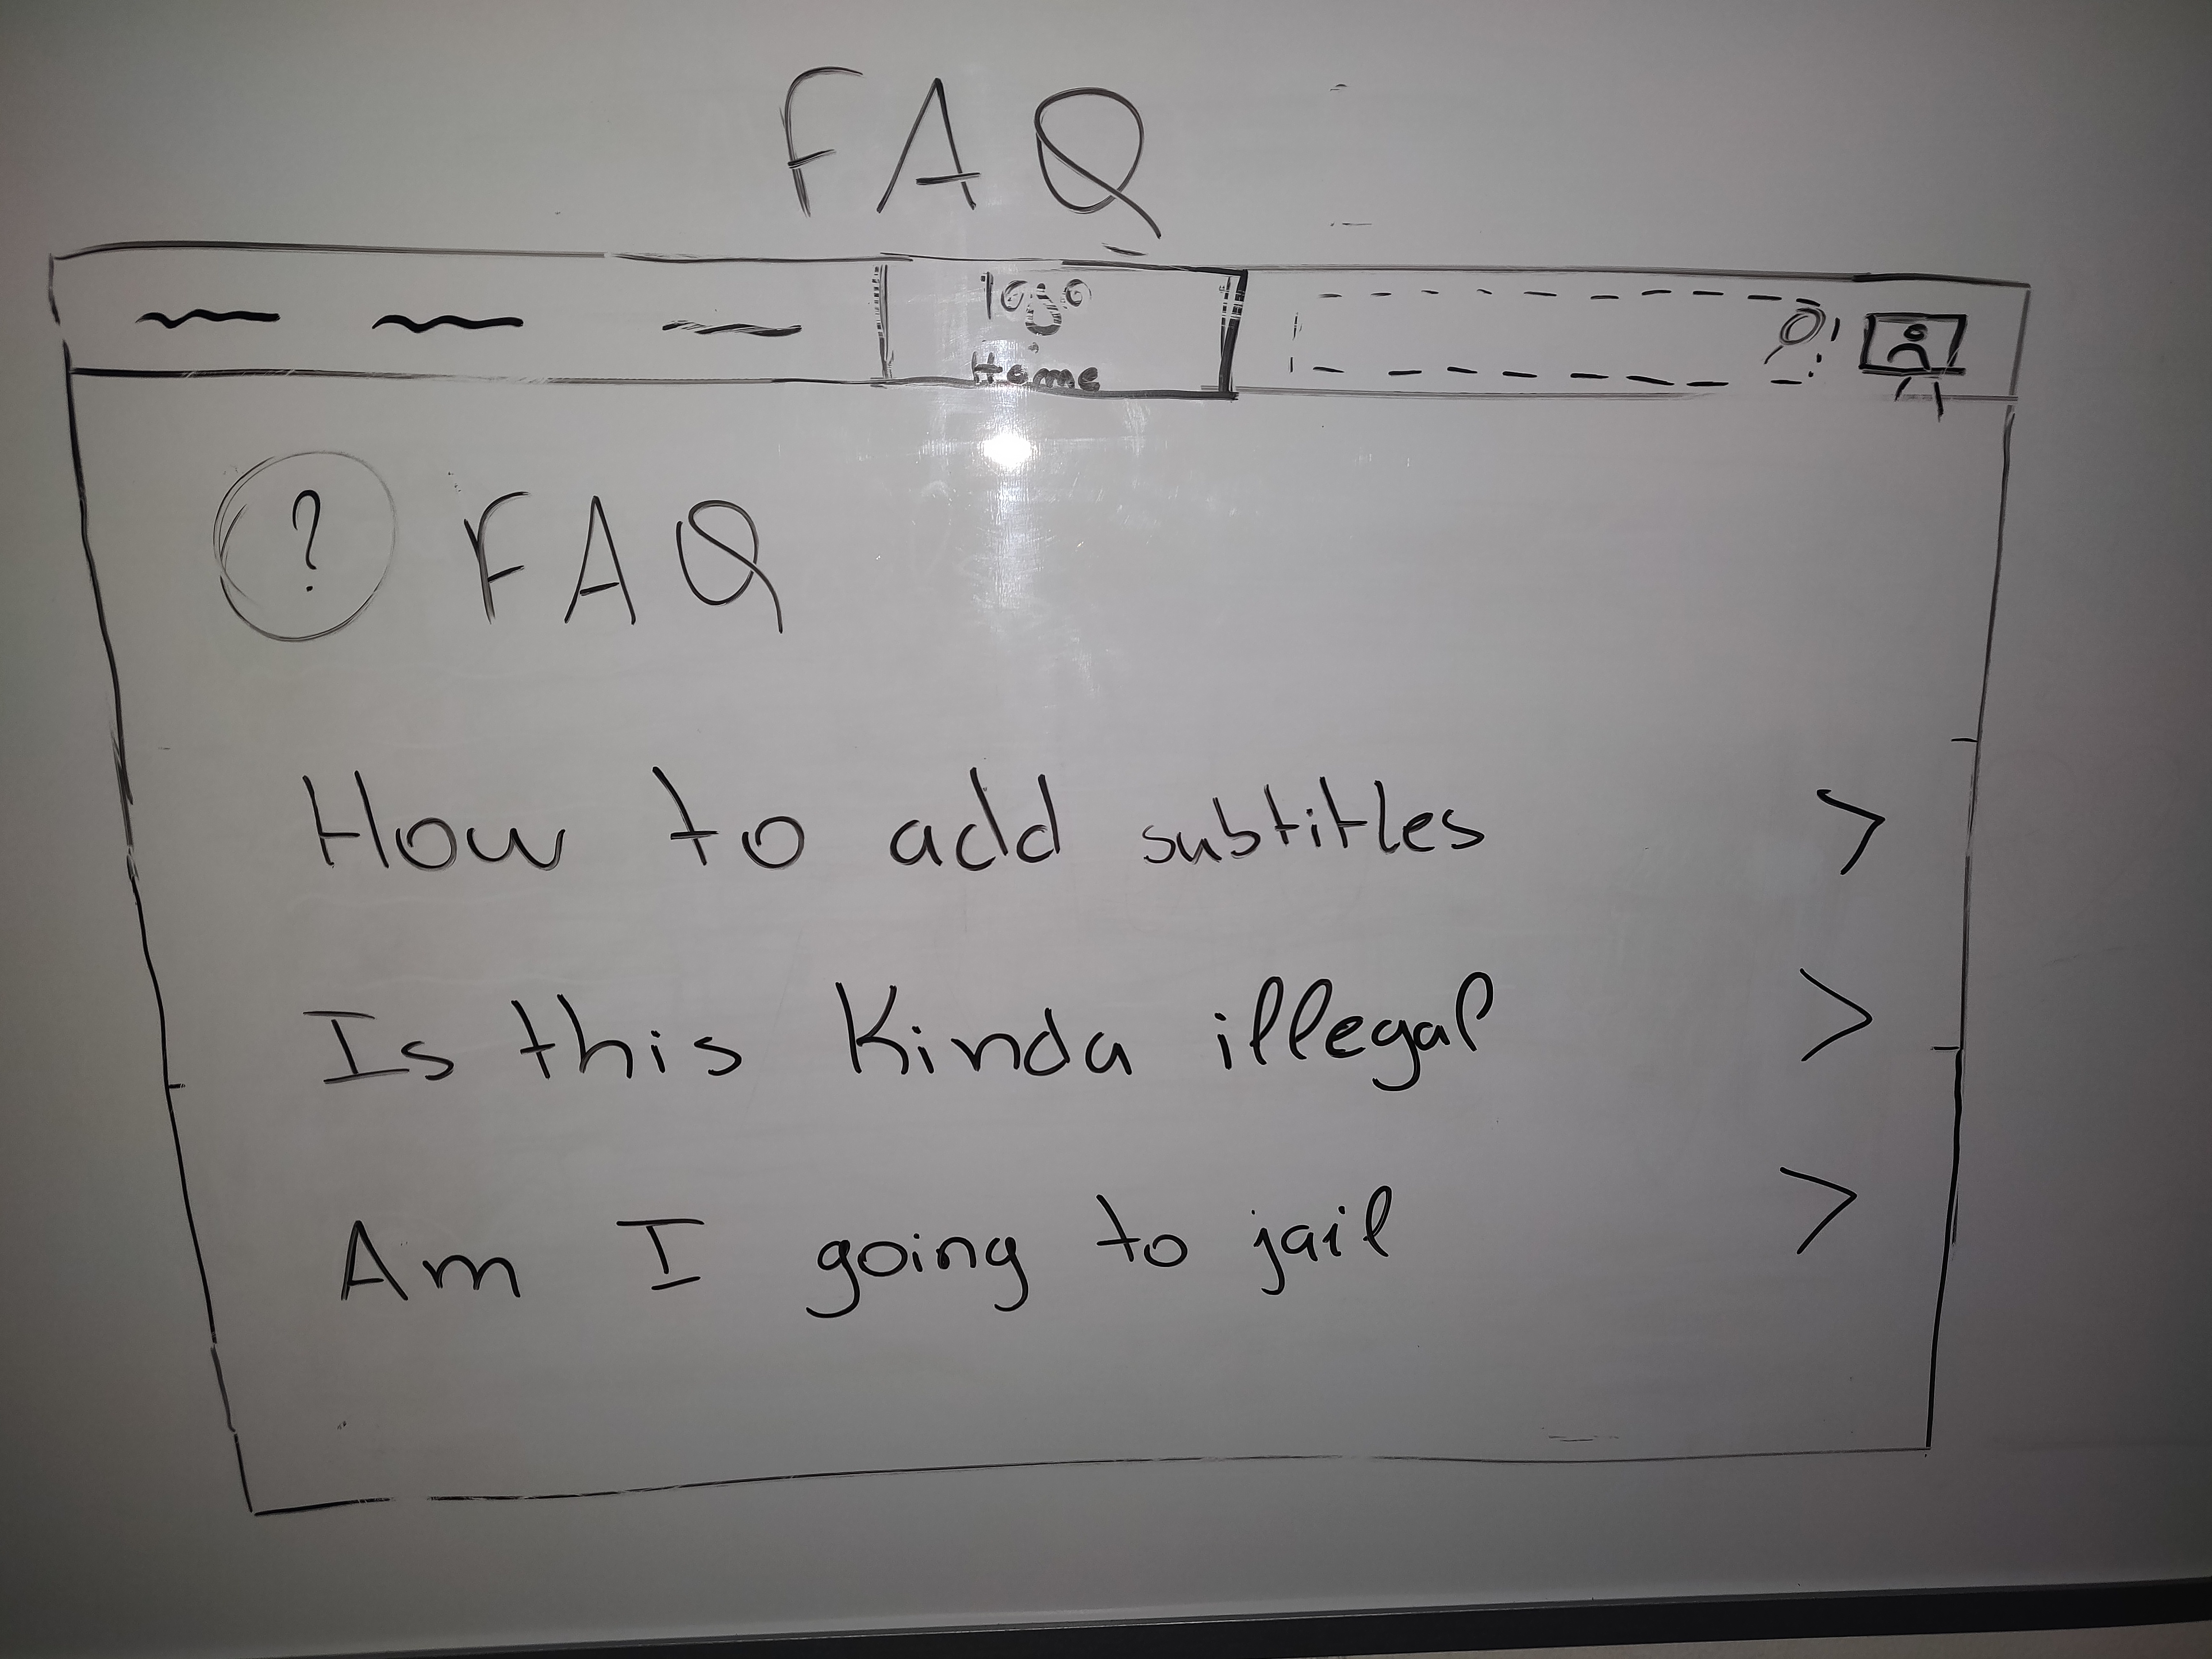 FAQ
logo
Home
? FAQ
How to add subtitles >
Is this Kinda illegal >
Am I going to jail >